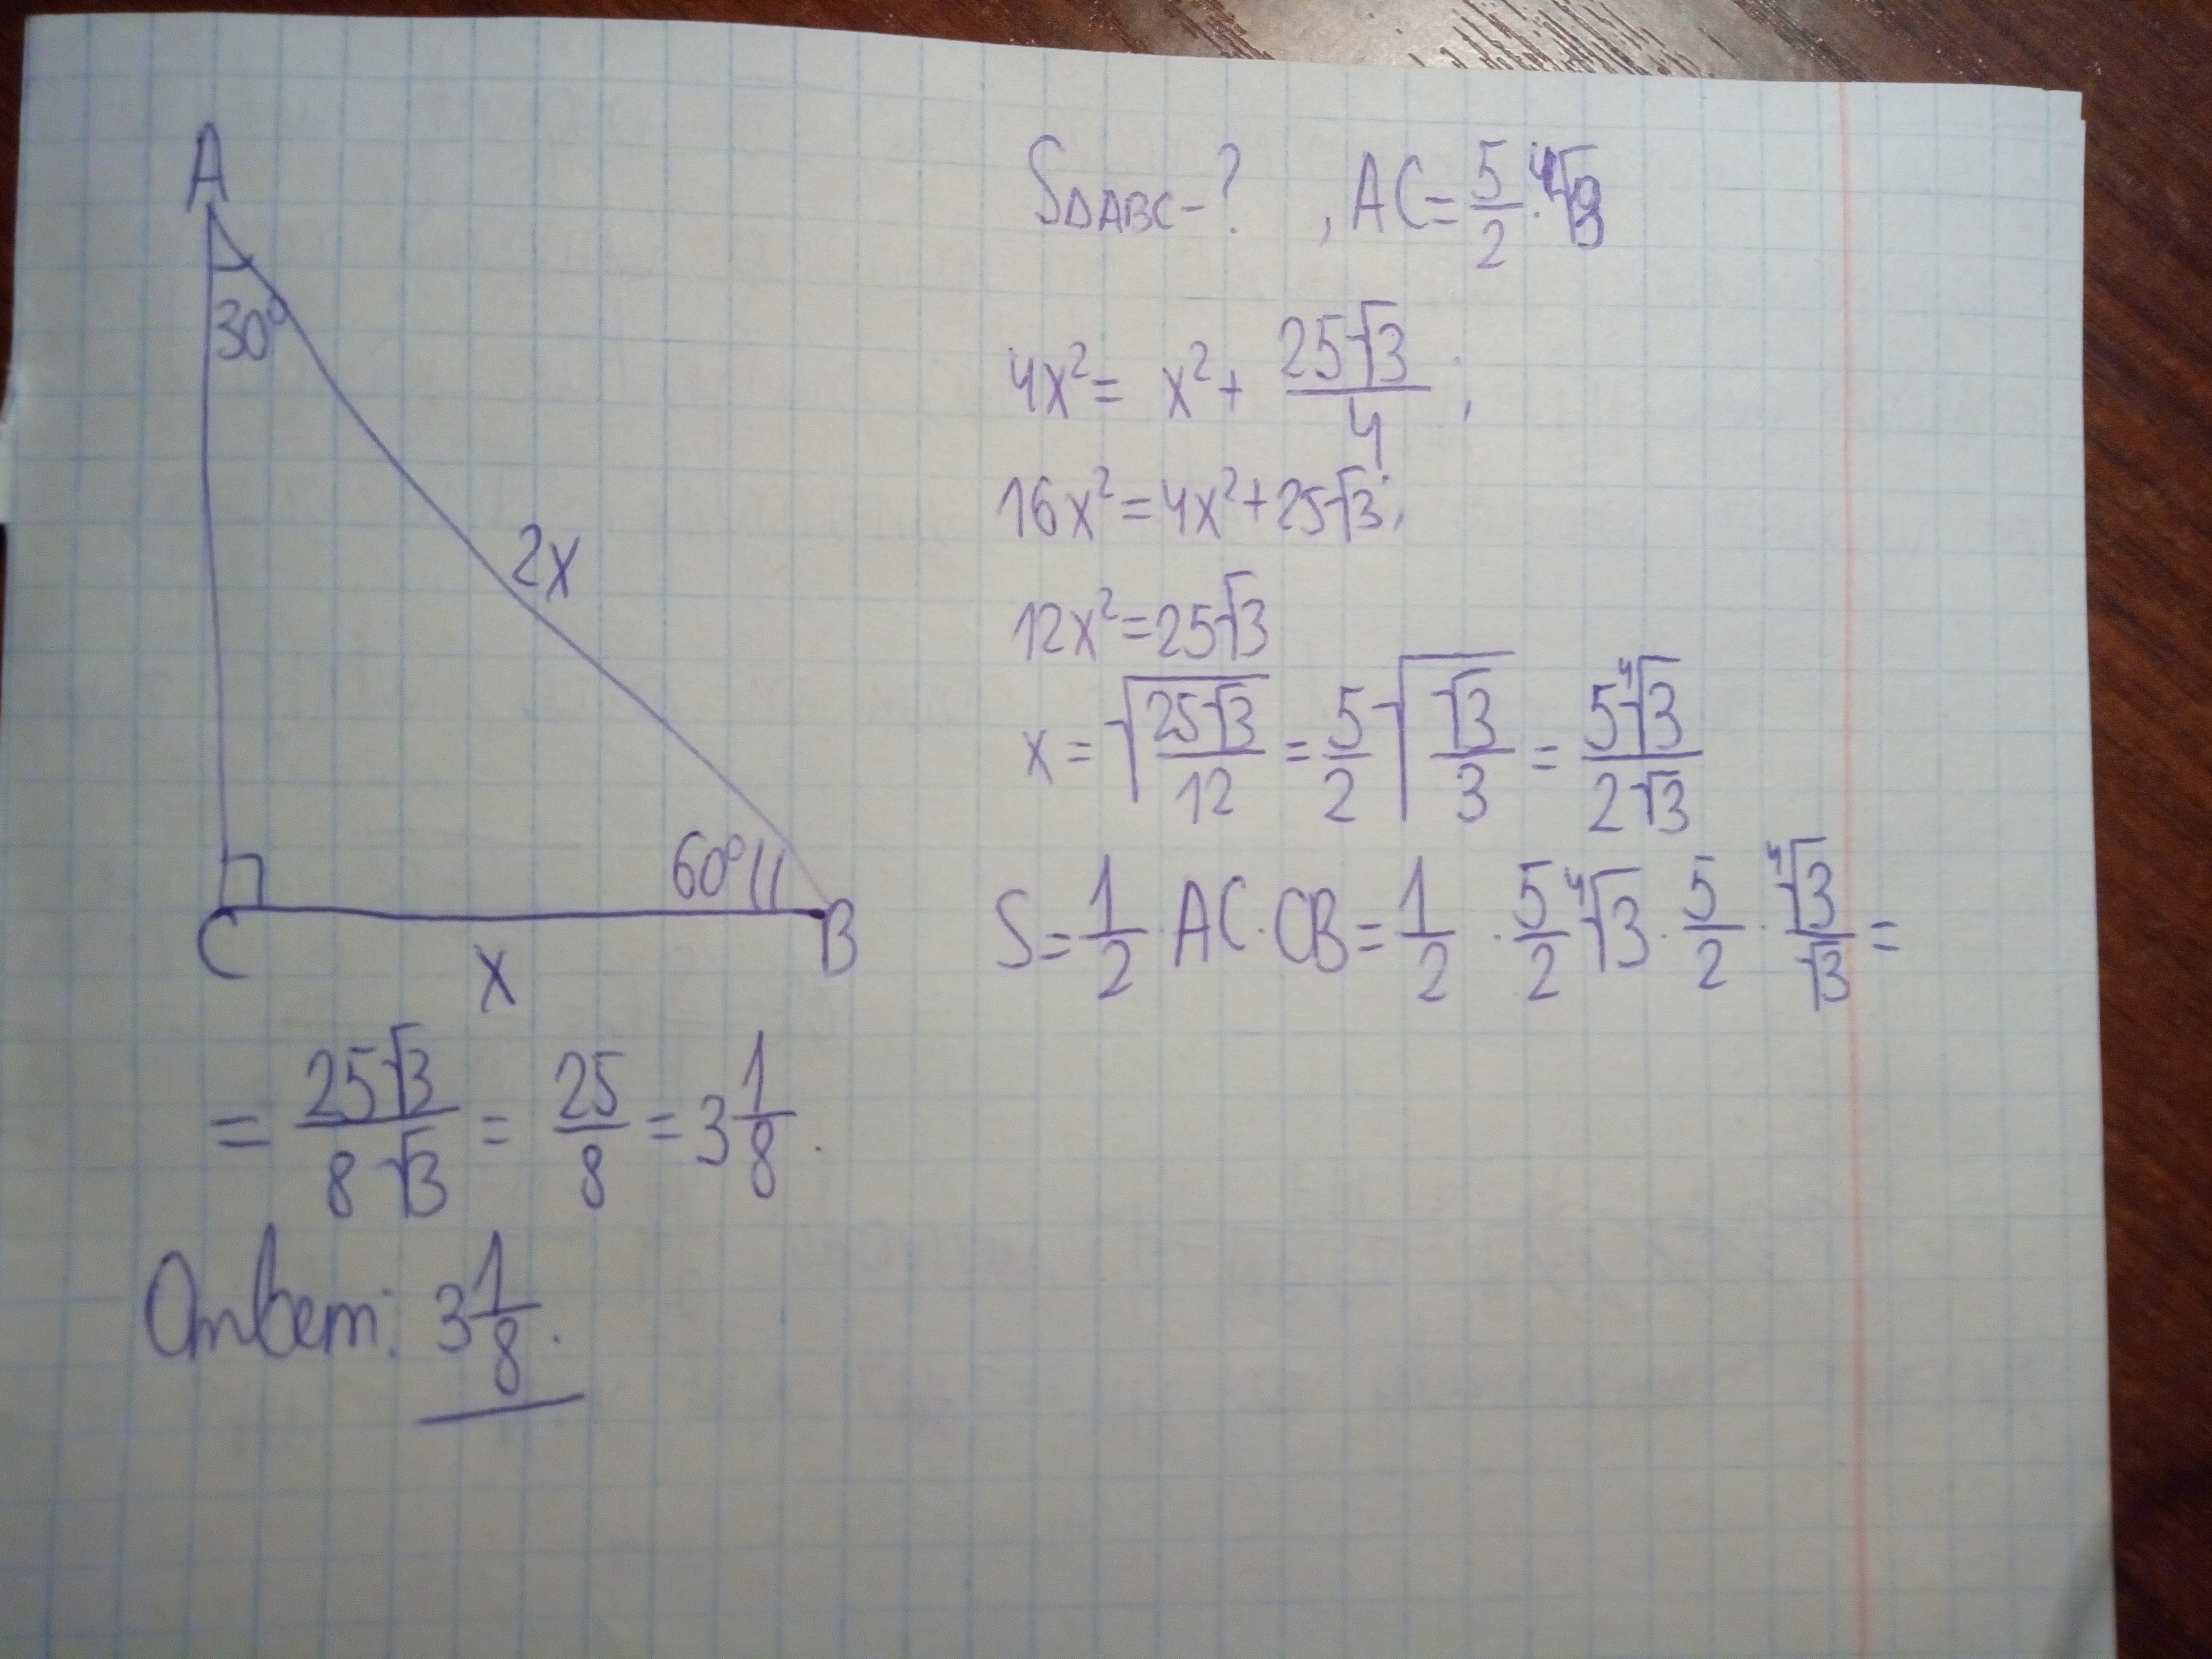 A
30°
2x
60°
C
x
B
S△ABC-? , AC = 5/2 · ⁴√3
4x² = x² + 25√3/4 ;
16x² = 4x² + 25√3 ;
12x² = 25√3
x = √(25√3/12) = 5/2 √(√3/3) = 5⁴√3/2√3
S = 1/2 · AC · CB = 1/2 · 5/2 ⁴√3 · 5/2 · ⁴√3/√3 =
= 25√3/8√3 = 25/8 = 3 1/8 .
Ответ: 3 1/8 .